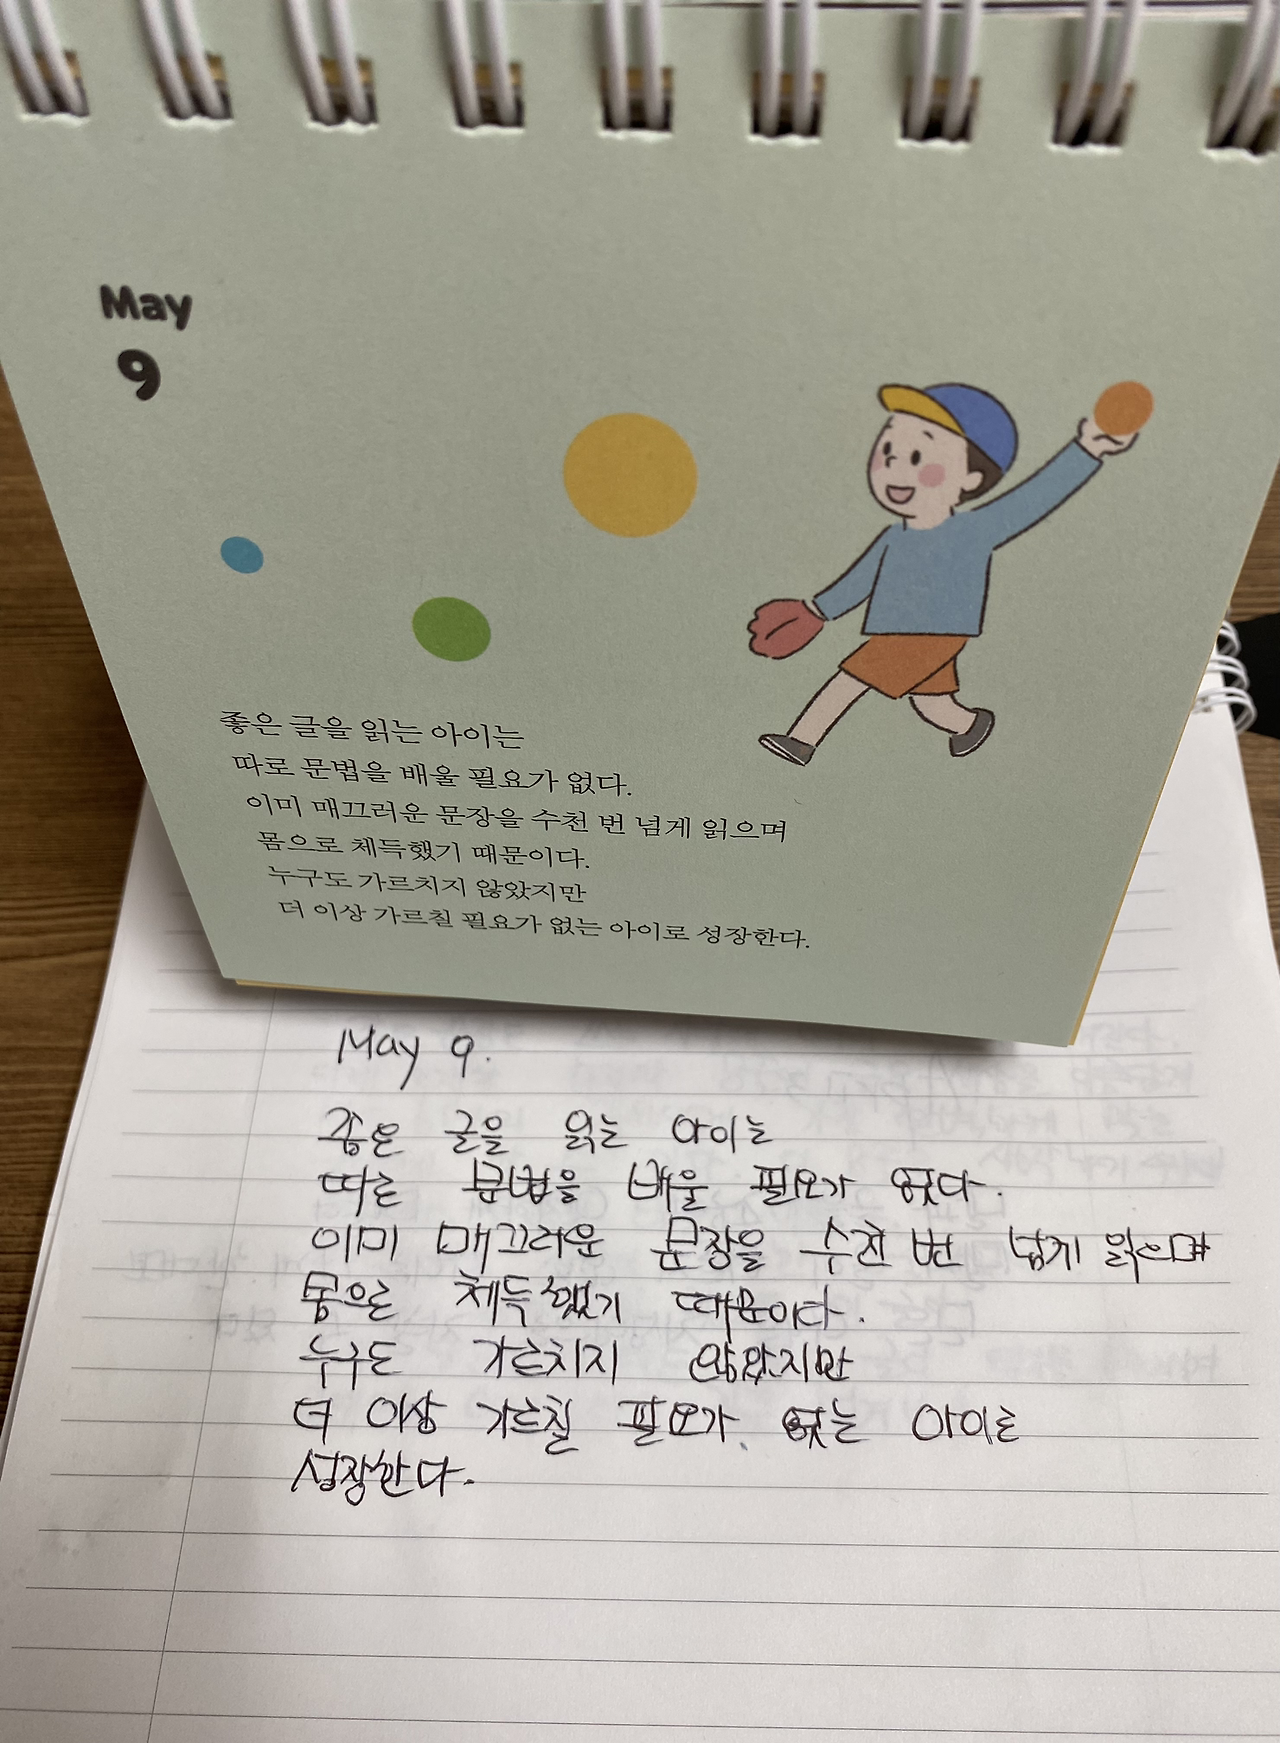 May
9
좋은 글을 읽는 아이는
따로 문법을 배울 필요가 없다.
이미 매끄러운 문장을 수천 번 넘게 읽으며
몸으로 체득했기 때문이다.
누구도 가르치지 않았지만
더 이상 가르칠 필요가 없는 아이로 성장한다.
May 9.
좋은 글을 읽는 아이는
따로 문법을 배울 필요가 없다.
이미 매끄러운 문장을 수천 번 넘게 읽으며
몸으로 체득했기 때문이다.
누구도 가르치지 않았지만
더 이상 가르칠 필요가 없는 아이로
성장한다.